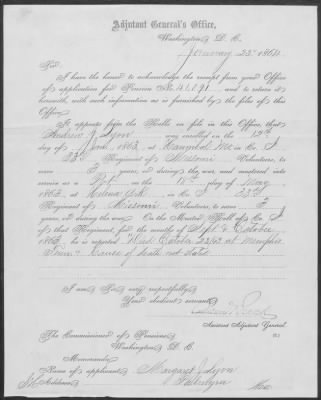 Adjutant General's Office,
Washington D. C.
January 23d 1864
Sir:
I have the honor to acknowledge the receipt from your Office
of application for Pension No. 41.091. and to return it
herewith, with such information as is furnished by the files of this
Office.
It appears from the Rolls on file in this Office, that
Andrew J. Lyon was enrolled on the 12th
day of 1863, at Hannibal Mo in Co. I
33d Regiment of Missouri Volunteers, to serve
3 years, or during the war, and mustered into
service as a Pvt. on the day of May
1863, at Helena Ark in Co. I 33d
Regiment of Missouri Volunteers, to serve 3
years, or during the war. On the Muster Roll of Co. I
of that Regiment, for the months of Sept & October
1863, he is reported "Died October 22/63 at Memphis
Tenn" Cause of death not stated
I am Sir, very respectfully
Your obedient servant,
Assistant Adjutant General.
The Commissioner of Pensions
Washington D. C.
Memoranda:
Name of applicant, Margaret J. Lyon
Address,